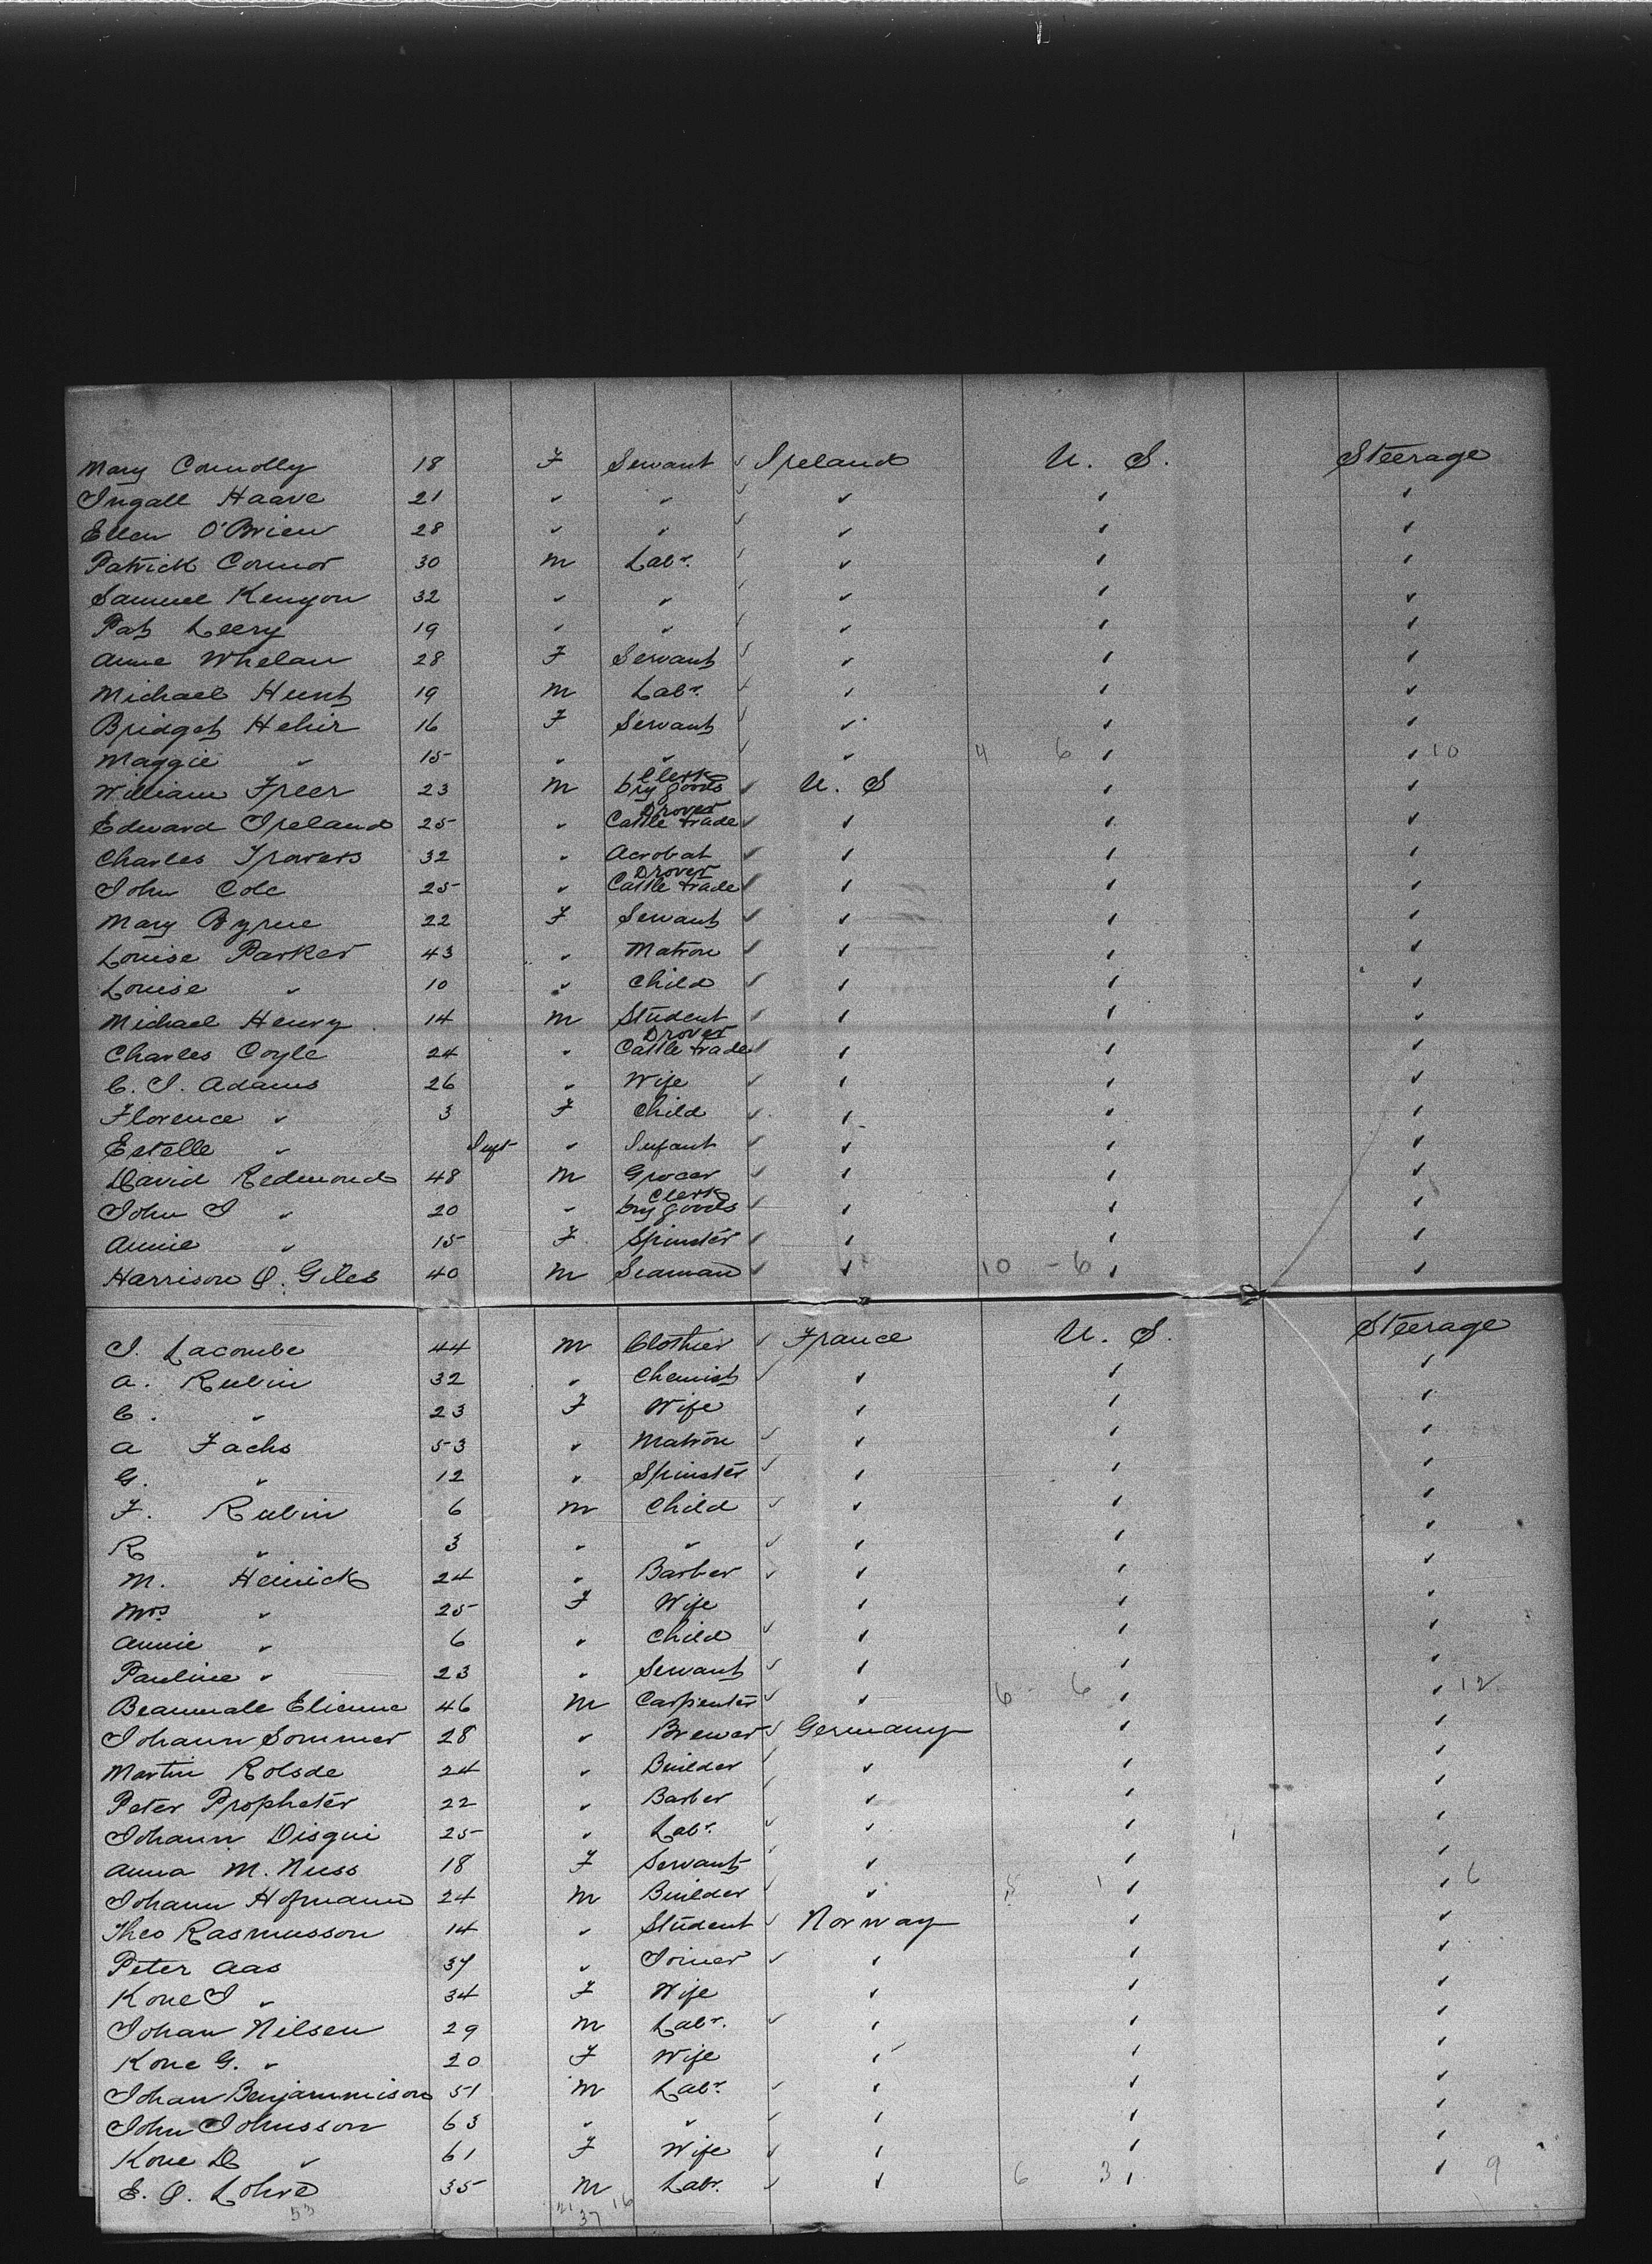 Mary Connolly 18 F Servant ✓ Ireland U. S. Steerage
Ingall Haave 21 " " ✓ " " "
Ellen O'Brien 28 " " ✓ " " "
Patrick Connor 30 M Labr. ✓ " " "
Samuel Kenyon 32 " " ✓ " " "
Pat Leery 19 " " ✓ " " "
Anne Whelan 28 F Servant ✓ " " "
Michael Hunt 19 M Labr. ✓ " " "
Bridget Hehir 16 F Servant ✓ " " "
Maggie " 15 " " ✓ " 4 6 " " 10
William Freer 23 M Clerk Dry goods ✓ U. S " "
Edward Ireland 25 " Drover Cattle trade ✓ " " "
Charles Travers 32 " Acrobat ✓ " " "
John Cole 25 " Drover Cattle trade ✓ " " "
Mary Byrne 22 F Servant ✓ " " "
Louise Parker 43 " Matron ✓ " " "
Louise " 10 " Child ✓ " " "
Michael Henry 14 M Student ✓ " " "
Charles Coyle 24 " Drover Cattle trade ✓ " " "
C. J. Adams 26 " Wife ✓ " " "
Florence " 3 F Child ✓ " " "
Estelle " Inft " Infant ✓ " " "
David Redmond 48 M Grocer ✓ " " "
John J " 20 " Clerk Dry goods ✓ " " "
Annie " 15 F Spinster ✓ " " "
Harrison O. Giles 40 M Seaman ✓ " 10 - 6 " "
J. Lacombe 44 M Clothier ✓ France U. S. Steerage
A. Rubin 32 " Chemist ✓ " " "
C. " 23 F Wife " " "
A Fachs 53 " Matron ✓ " " "
G. " 12 " Spinster ✓ " " "
F. Rubin 6 M Child ✓ " " "
R " 3 " " ✓ " " "
M. Heinick 24 " Barber ✓ " " "
Mrs " 25 F Wife " " "
Annie " 6 " Child ✓ " " "
Pauline " 23 " Servant ✓ " " "
Elienne 46 M Carpenter ✓ " 6 - 6 " " 12
Johann Sommer 28 " Brewer ✓ Germany " "
Martin Rolsde 24 " Builder ✓ " " "
Peter Propheter 22 " Barber ✓ " " "
Johann Disqui 25 " Labr. ✓ " " "
Anna M. Nuss 18 F Servant ✓ " " "
Johann Hofmann 24 M Builder ✓ " 5 1 " " 6
Theo Rasmusson 14 " Student ✓ Norway " "
Peter Aas 37 " Joiner ✓ " " "
Kone J " 34 F Wife " " "
Johan Nilsen 29 M Labr. ✓ " " "
Kone G. " 20 F Wife " " "
Johan Benjamminson 51 M Labr. ✓ " " "
John Johnsson 63 " " ✓ " " "
Kone D " 61 F Wife ✓ " " "
E. O. Lohre 35 M Labr. ✓ " 6 3 " " 9
53 21 16
37